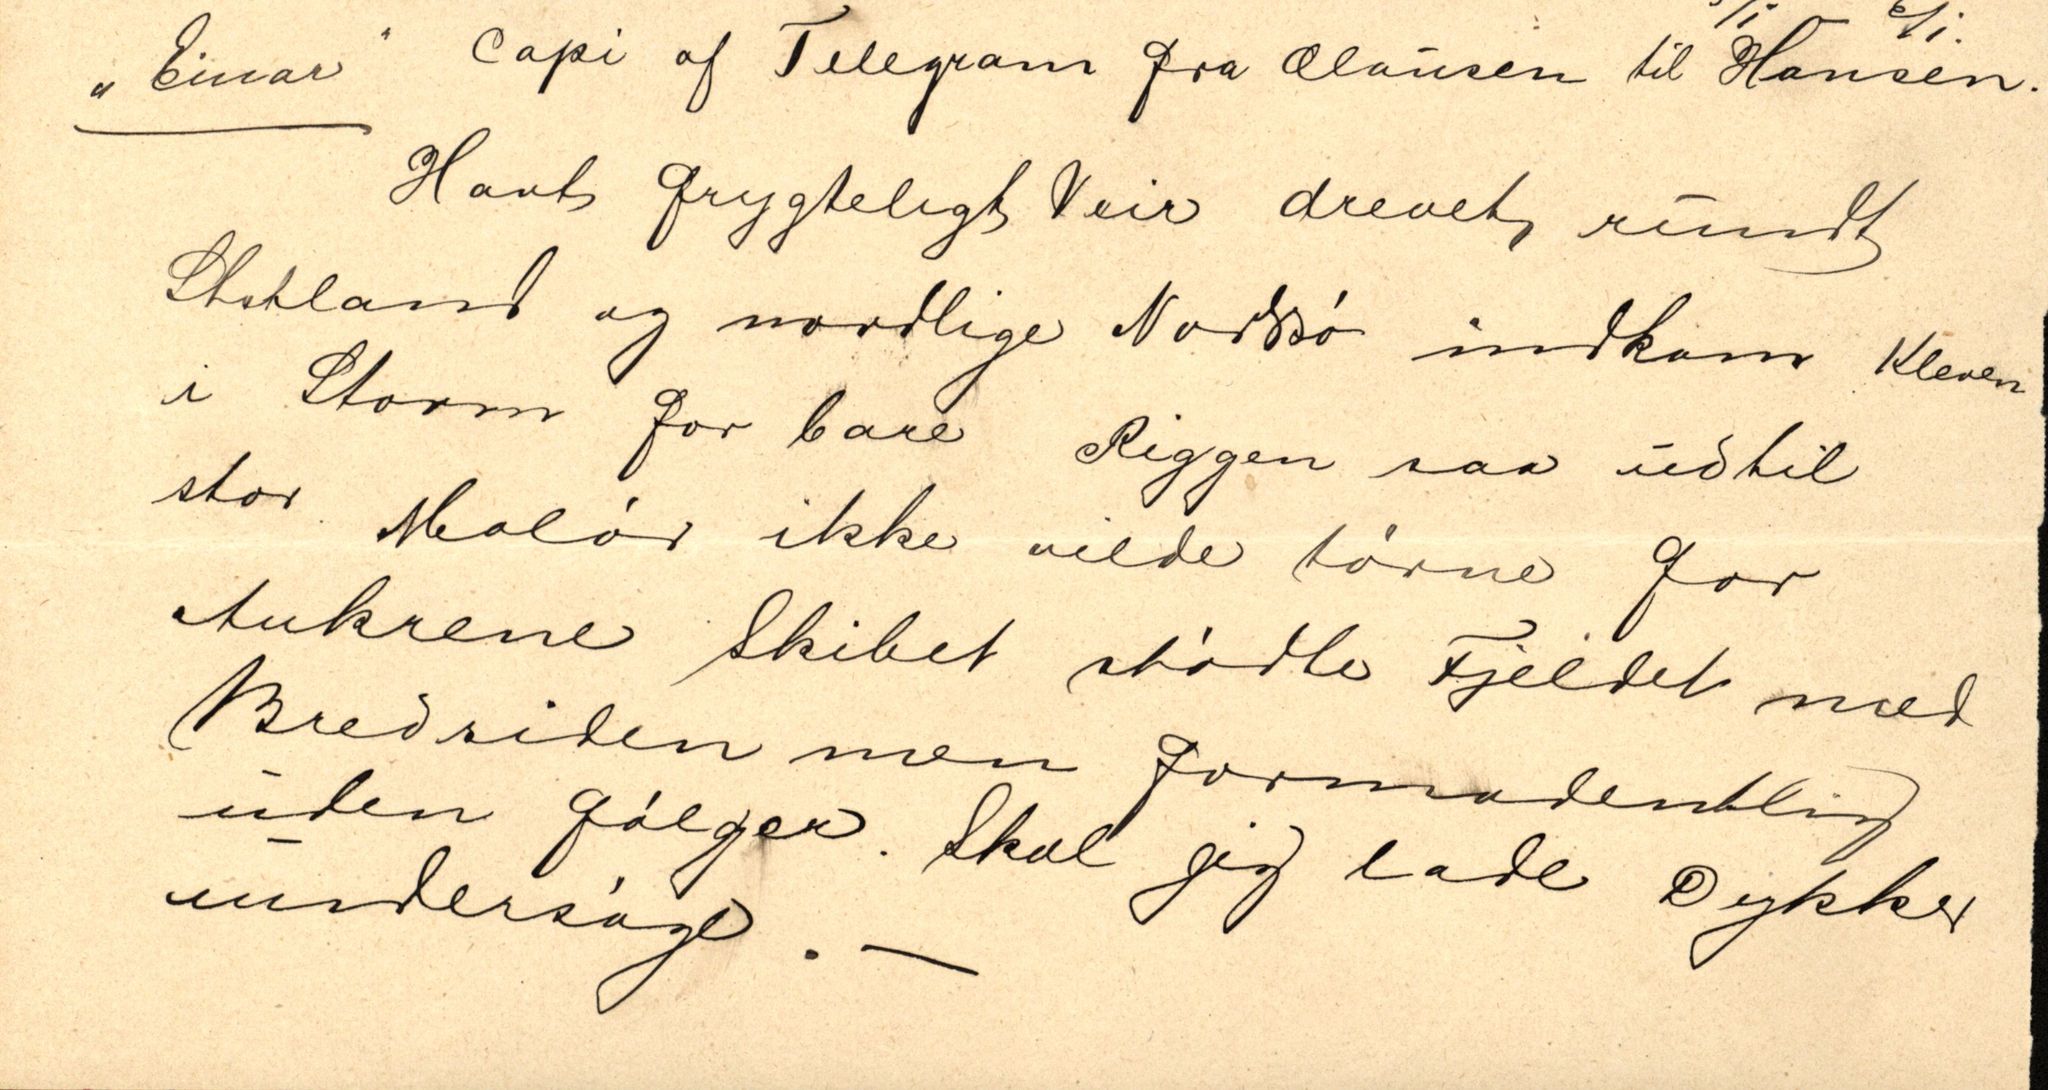 „Einar" Copi af Telegram fra Clausen til Hansen.
Havt frygteligt Veir drevet rundt
Shetland og nordlige Nordsö indkom Kleven
i Storm for bare Riggen saa udtil
stor Malör ikke vilde törne for
Ankrene Skibet stödte Fjeldet med
Bredsiden men formodentlig
uden fölger. Skal jeg lade Dykker
undersöge. —